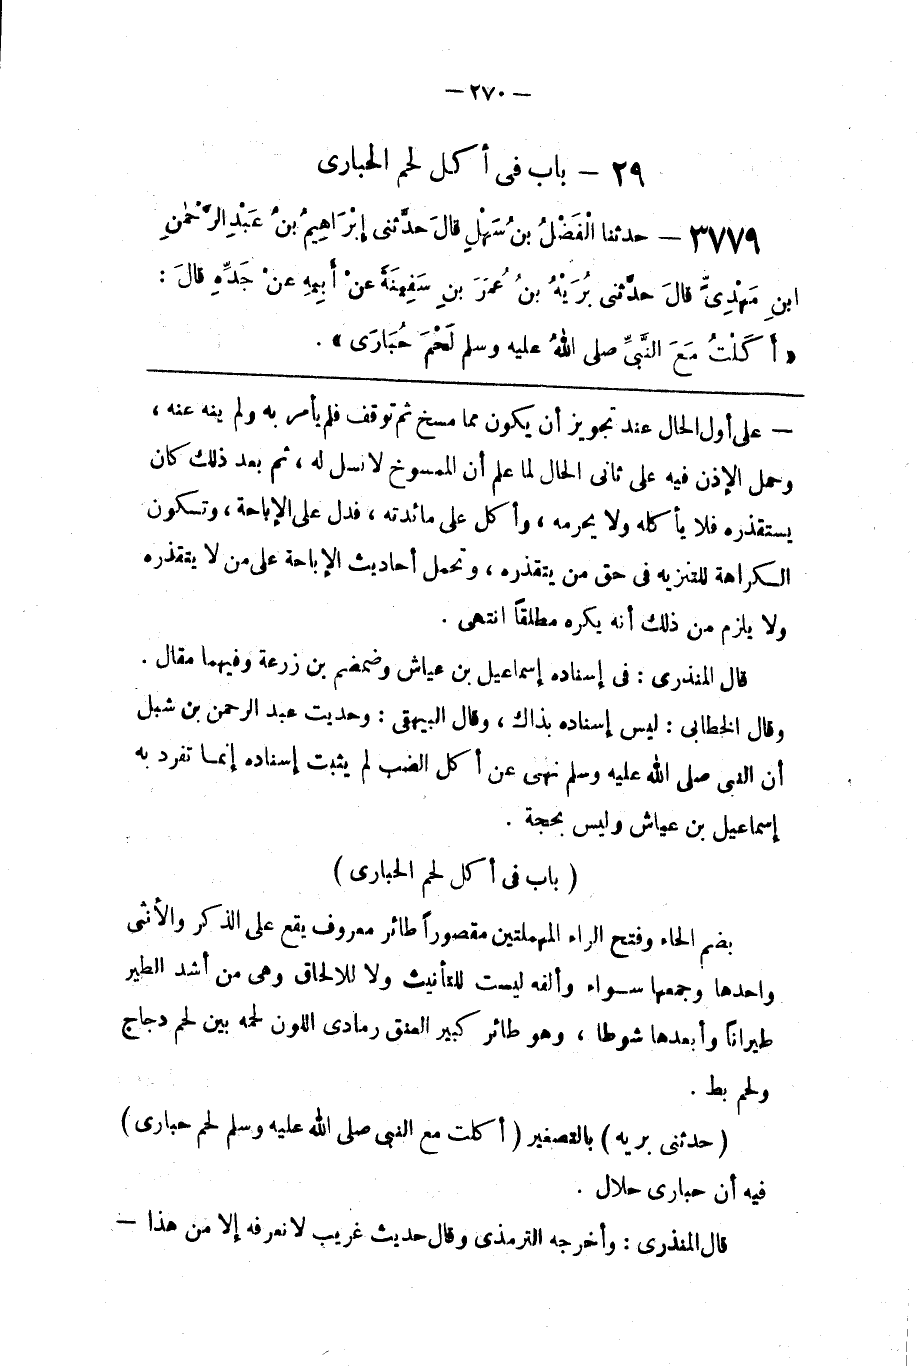 — ٢٧٠ —
٢٩ — باب فى أكل لحم الحبارى
٣٧٧٩ — حدثنا الْفَضْلُ بن سَهْلٍ قالَ حدَّثنى إبْرَاهِيمُ بنُ عَبْدِالرَّحْمٰنِ
ابنِ مَهْدِىٍّ قالَ حدَّثنى بُرَيْهُ بنُ عُمَرَ بنِ سَفِينَةَ عنْ أَبِيهِ عنْ جَدِّهِ قالَ :
« أَكَلْتُ مَعَ النَّبىِّ صلى اللهُ عليه وسلم لَحْمَ حُبَارَى » .
— على أول الحال عند تجويز أن يكون مما مسخ ثم توقف فلم يأمر به ولم ينه عنه ،
وحمل الإذن فيه على ثانى الحال لما علم أن الممسوخ لا نسل له ، ثم بعد ذلك كان
يستقذره فلا يأكله ولا يحرمه ، وأكل على مائدته ، فدل على الإباحة ، وتكون
الكراهة للتنزيه فى حق من يتقذره ، وتحمل أحاديث الإباحة على من لا يتقذره
ولا يلزم من ذلك أنه يكره مطلقاً انتهى .
قال المنذرى : فى إسناده إسماعيل بن عياش وضمضم بن زرعة وفيهما مقال .
وقال الخطابى : ليس إسناده بذاك ، وقال البيهقى : وحديث عبد الرحمن بن شبل
أن النبى صلى الله عليه وسلم نهى عن أكل الضب لم يثبت إسناده إنمــا تفرد به
إسماعيل بن عياش وليس بحجة .
( باب فى أكل لحم الحبارى )
بضم الحاء وفتح الراء المهملتين مقصوراً طائر معروف يقع على الذكر والأنثى
واحدها وجمعها ســواء وألفه ليست للتأنيث ولا للالحاق وهى من أشد الطير
طيراناً وأبعدها شوطا ، وهو طائر كبير العنق رمادى اللون لحمه بين لحم دجاج
ولحم بط .
( حدثنى بريه ) بالتصغير ( أكلت مع النبى صلى الله عليه وسلم لحم حبارى )
فيه أن حبارى حلال .
قال المنذرى : وأخرجه الترمذى وقال حديث غريب لا نعرفه إلا من هذا —